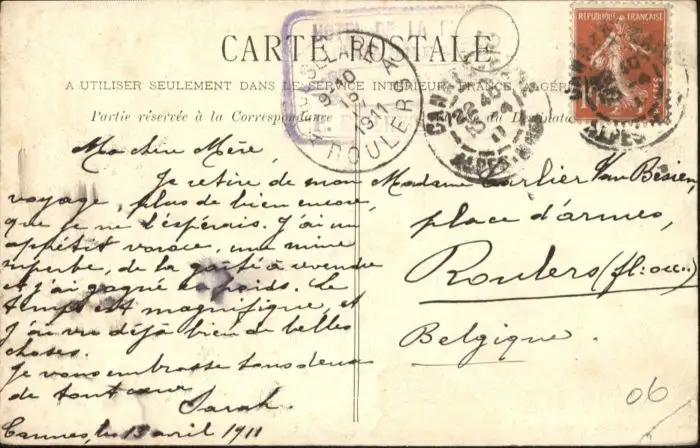 HOTEL DE LA
CARTE POSTALE
A UTILISER SEULEMENT DANS LE SERVICE INTÉRIEUR FRANCE, ALGÉRI
Partie réservée à la Correspondance
au Destinata
RÉPUBLIQUE FRANÇAISE
ROUSSELARE
10
1911
ROULERS
CANNES
ALPES
ALPES
Ma chère Mère,
Je retire de mon
voyage, plus de bien encore,
que je ne l'espérais. J'ai un
appétit vorace, une mine
superbe, de la gaîté à revendre
et j'ai gagné en poids. Le
temps est magnifique, et
j'ai vu déjà bien de belles
choses.
Je vous embrasse tous deux
de tout cœur
Sarah.
Cannes, le 13 avril 1911
Madame Carlier Van Bésien
place d'armes,
Roulers (fl: occ:)
Belgique.
06